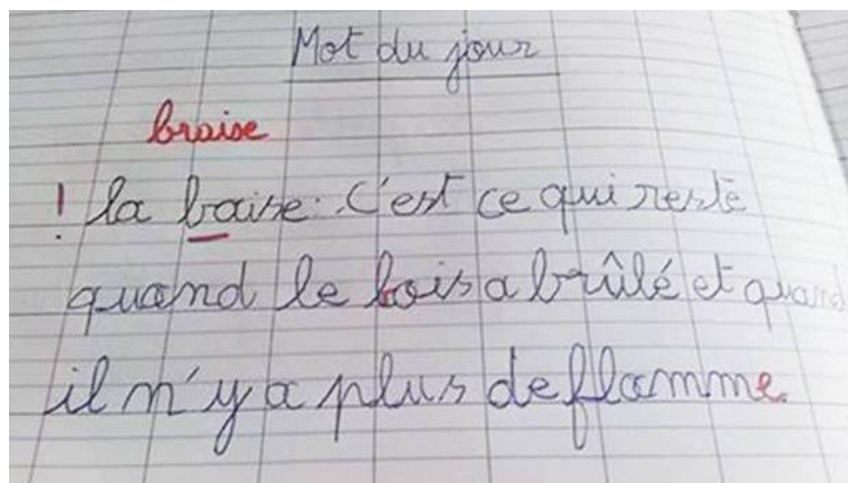 Mot du jour
braise
! la baise : C'est ce qui reste
quand le bois a brûlé et quand
il n'y a plus de flamme.